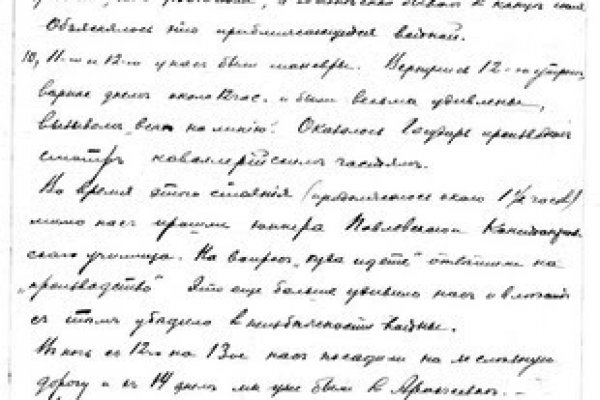 Объяснялось это приближающейся войной.
10, 11-го и 12-го у нас были маневры. Вернулись 12-го утром,
вернее днем около 12 час. и были весьма удивлены,
вызовом „всех на линию“. Оказалось Государь производит
смотр кавалерийским частям.
Во время этого стояния (продолжалось около 1½ часов)
мимо нас прошли юнкера Павловского Константинов-
ского училища. На вопрос „куда идете“ ответили на
„производство“ Это еще больше удивило нас и вместе
с тем убедило в неизбежности войны.
В ночь с 12го на 13ое нас посадили на железную
дорогу и 14 днем мы уже были в